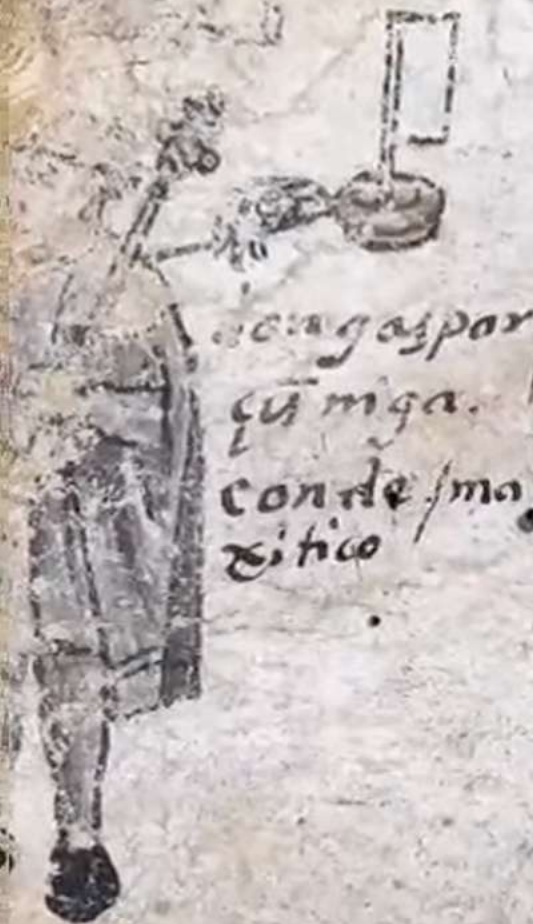 don gaspar
çūniga.
conde / ma
xitico